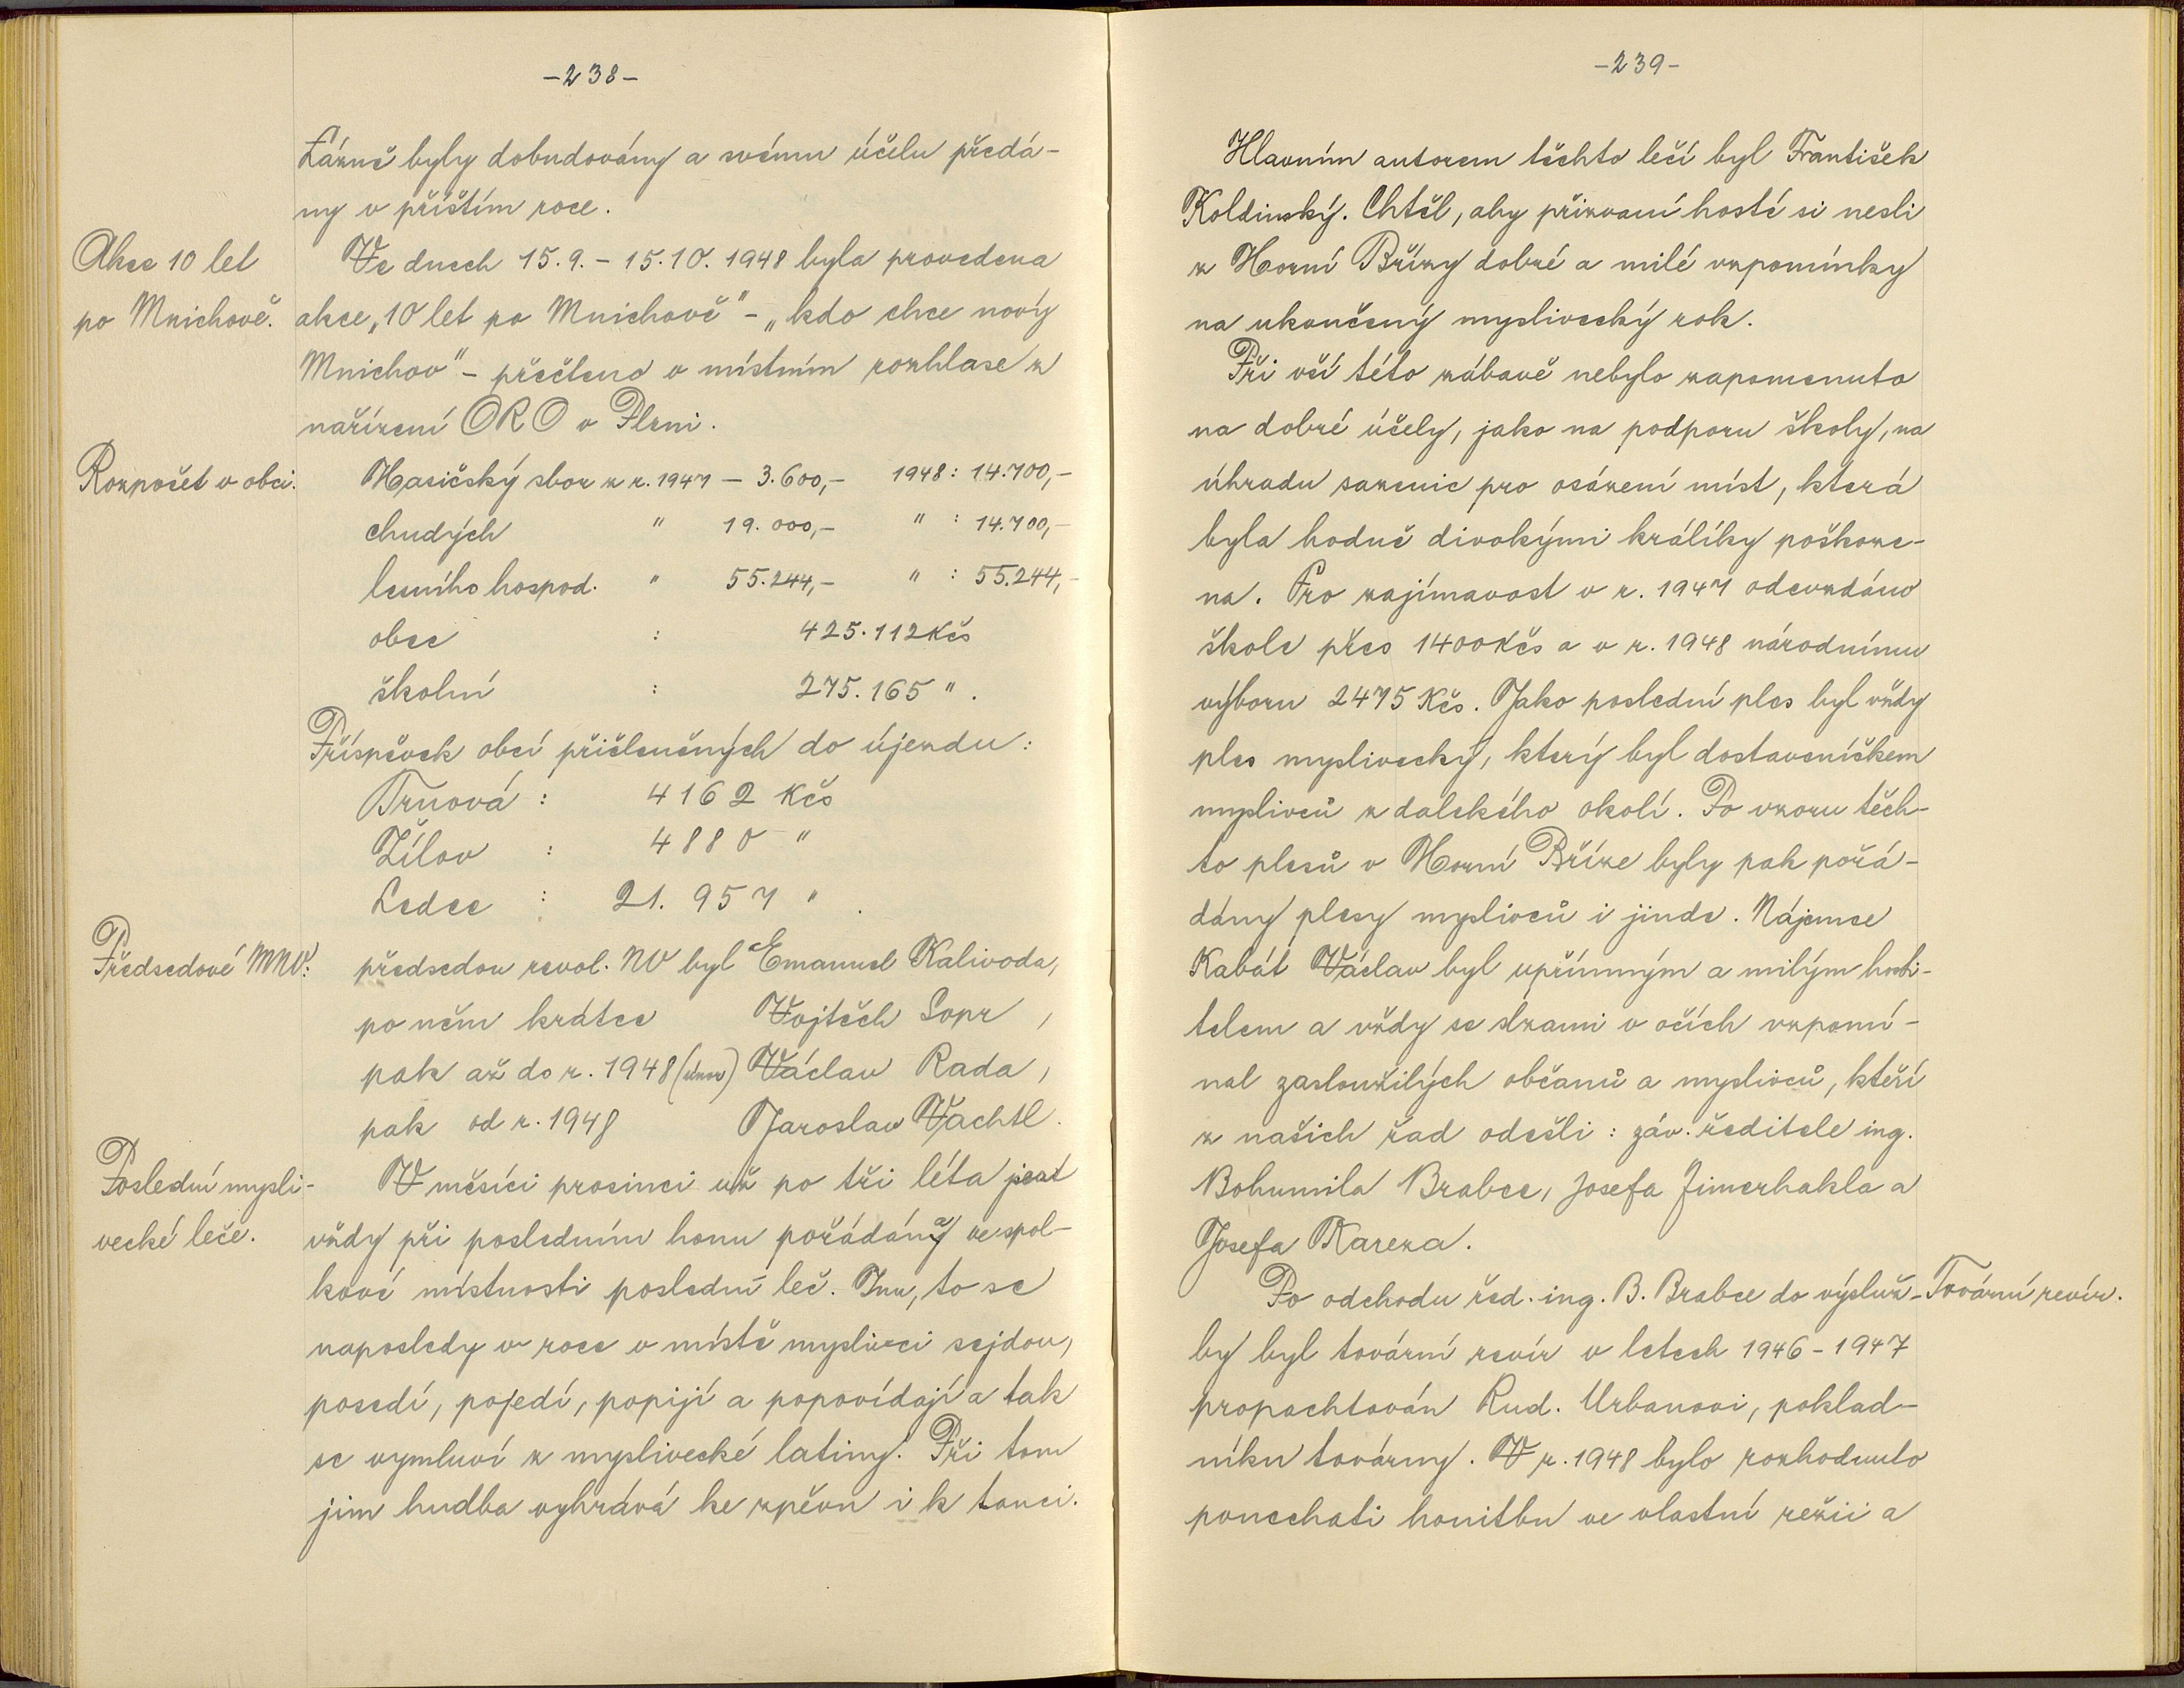 -238-
Lázně byly dobudovány a svému účelu předá-
ny v příštím roce.
Akce 10 let
po Mnichově.
Ve dnech 15.9. - 15.10. 1948 byla provedena
akce „10 let po Mnichově" - „kdo chce nový
Mnichov" - přečteno v místním rozhlase z
nařízení ORO v Plzni.
Rozpočet v obci.
Hasičský sbor z r. 1947 - 3.600,- 1948: 14.700,-
chudých " 19.000,- " : 14.700,-
lesního hospod. " 55.244,- " : 55.244,-
obce : 425.112 Kčs
školní : 275.165 " .
Příspěvek obcí přičleněných do újezdu:
Trnová : 4162 Kčs
Žilov : 4880 "
Ledce : 21.957 " .
Předsedové MNV:
předsedou revol. NV byl Emanuel Kalivoda,
po něm krátce Vojtěch Sopr ,
pak až do r. 1948 (únor) Václav Rada,
pak od r. 1948 Jaroslav Vachtl.
Poslední mysli-
vecké leče.
V měsíci prosinci už po tři léta jest
vždy při posledním honu pořádána ve spol-
kové místnosti poslední leč. Inu, to se
naposledy v roce v místě myslivci sejdou,
posedí, pojedí, popijí a popovídají a tak
se vymluví z myslivecké latiny. Při tom
jim hudba vyhrává ke zpěvu i k tanci.
-239-
Hlavním autorem těchto lečí byl František
Koldinský. Chtěl, aby přizvaní hosté si nesli
z Horní Břízy dobré a milé vzpomínky
na ukončený myslivecký rok.
Při vší této zábavě nebylo zapomenuto
na dobré účely, jako na podporu školy, na
úhradu sazenic pro osázení míst, která
byla hodně divokými králíky poškoze-
na. Pro zajímavost v r. 1947 odevzdáno
škole přes 1400 Kčs a v r. 1948 národnímu
výboru 2475 Kčs. Jako poslední ples byl vždy
ples myslivecký, který byl dostaveníčkem
myslivců z dalekého okolí. Po vzoru těch-
to plesů v Horní Bříze byly pak pořá-
dány plesy myslivců i jinde. Nájemce
Kabát Václav byl upřímným a milým hosti-
telem a vždy se slzami v očích vzpomí-
nal zasloužilých občanů a myslivců, kteří
z našich řad odešli : záv. ředitele ing.
Bohumila Brabce, Josefa Zimerhakla a
Josefa Kareza.
Po odchodu řed. ing. B. Brabce do výsluž-
Tovární revír.
by byl tovární revír v letech 1946 - 1947
propachtován Rud. Urbanovi, poklad-
níku továrny. V r. 1948 bylo rozhodnuto
ponechati honitbu ve vlastní režii a